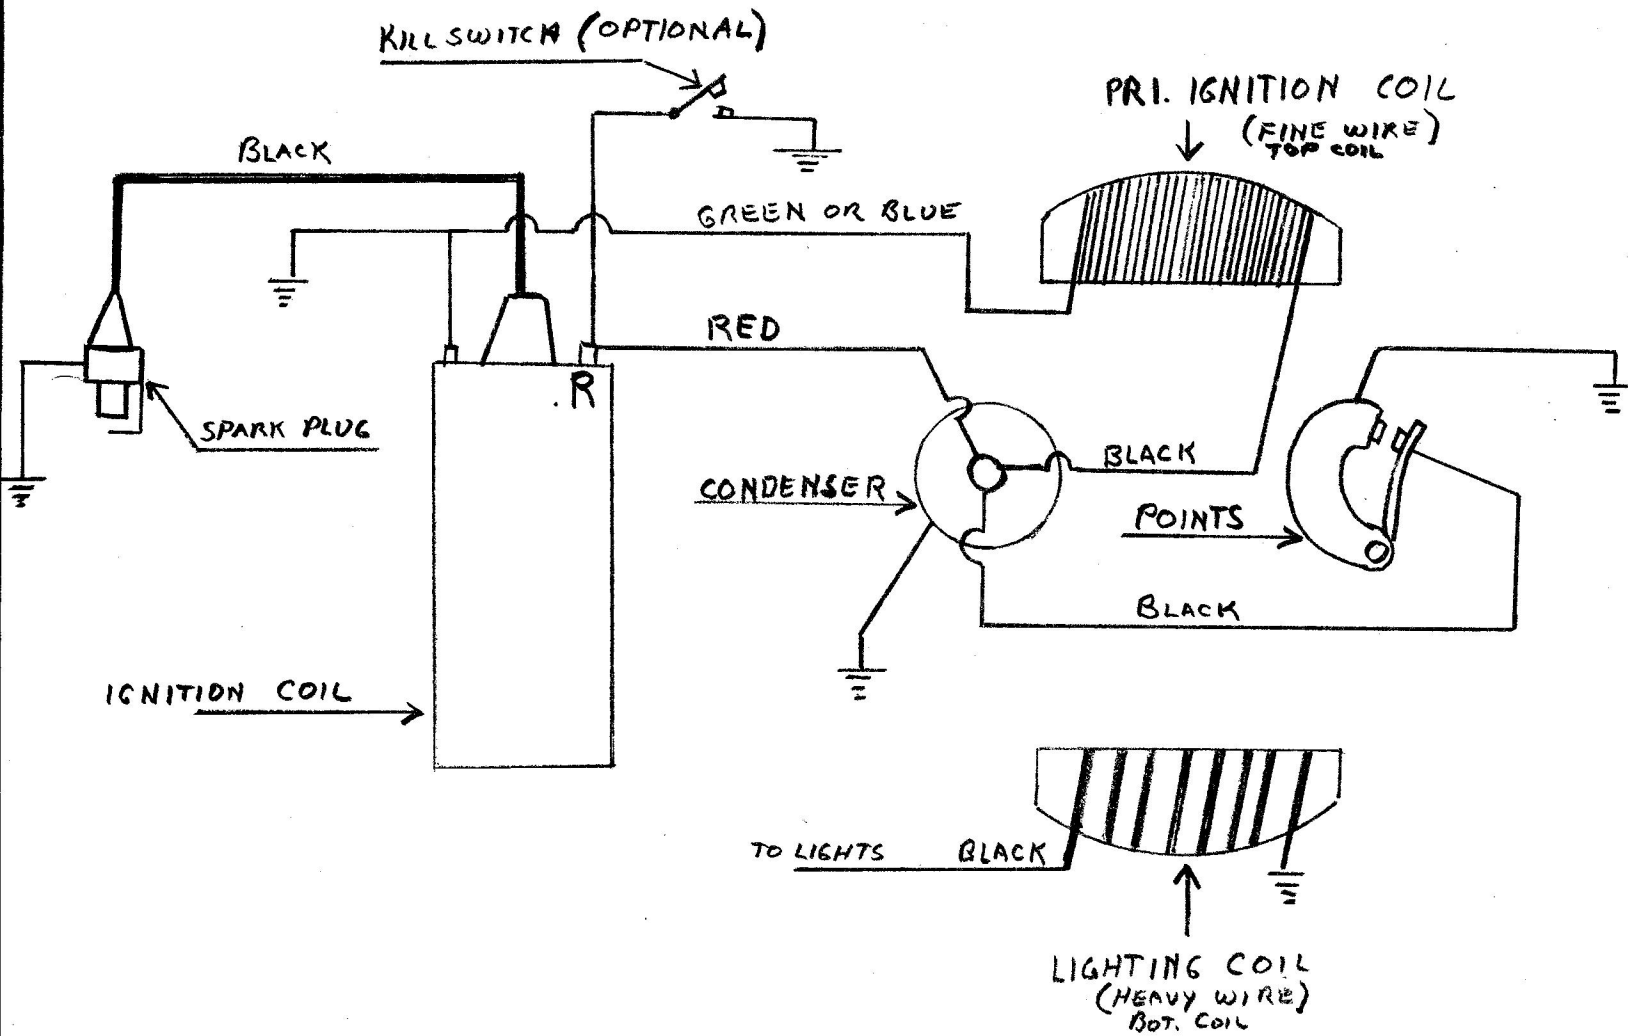 KILLSWITCH (OPTIONAL)
PRI. IGNITION COIL
(FINE WIRE)
TOP COIL
BLACK
GREEN OR BLUE
RED
.R
SPARK PLUG
BLACK
CONDENSER
POINTS
BLACK
IGNITION COIL
TO LIGHTS BLACK
LIGHTING COIL
(HEAVY WIRE)
BOT. COIL